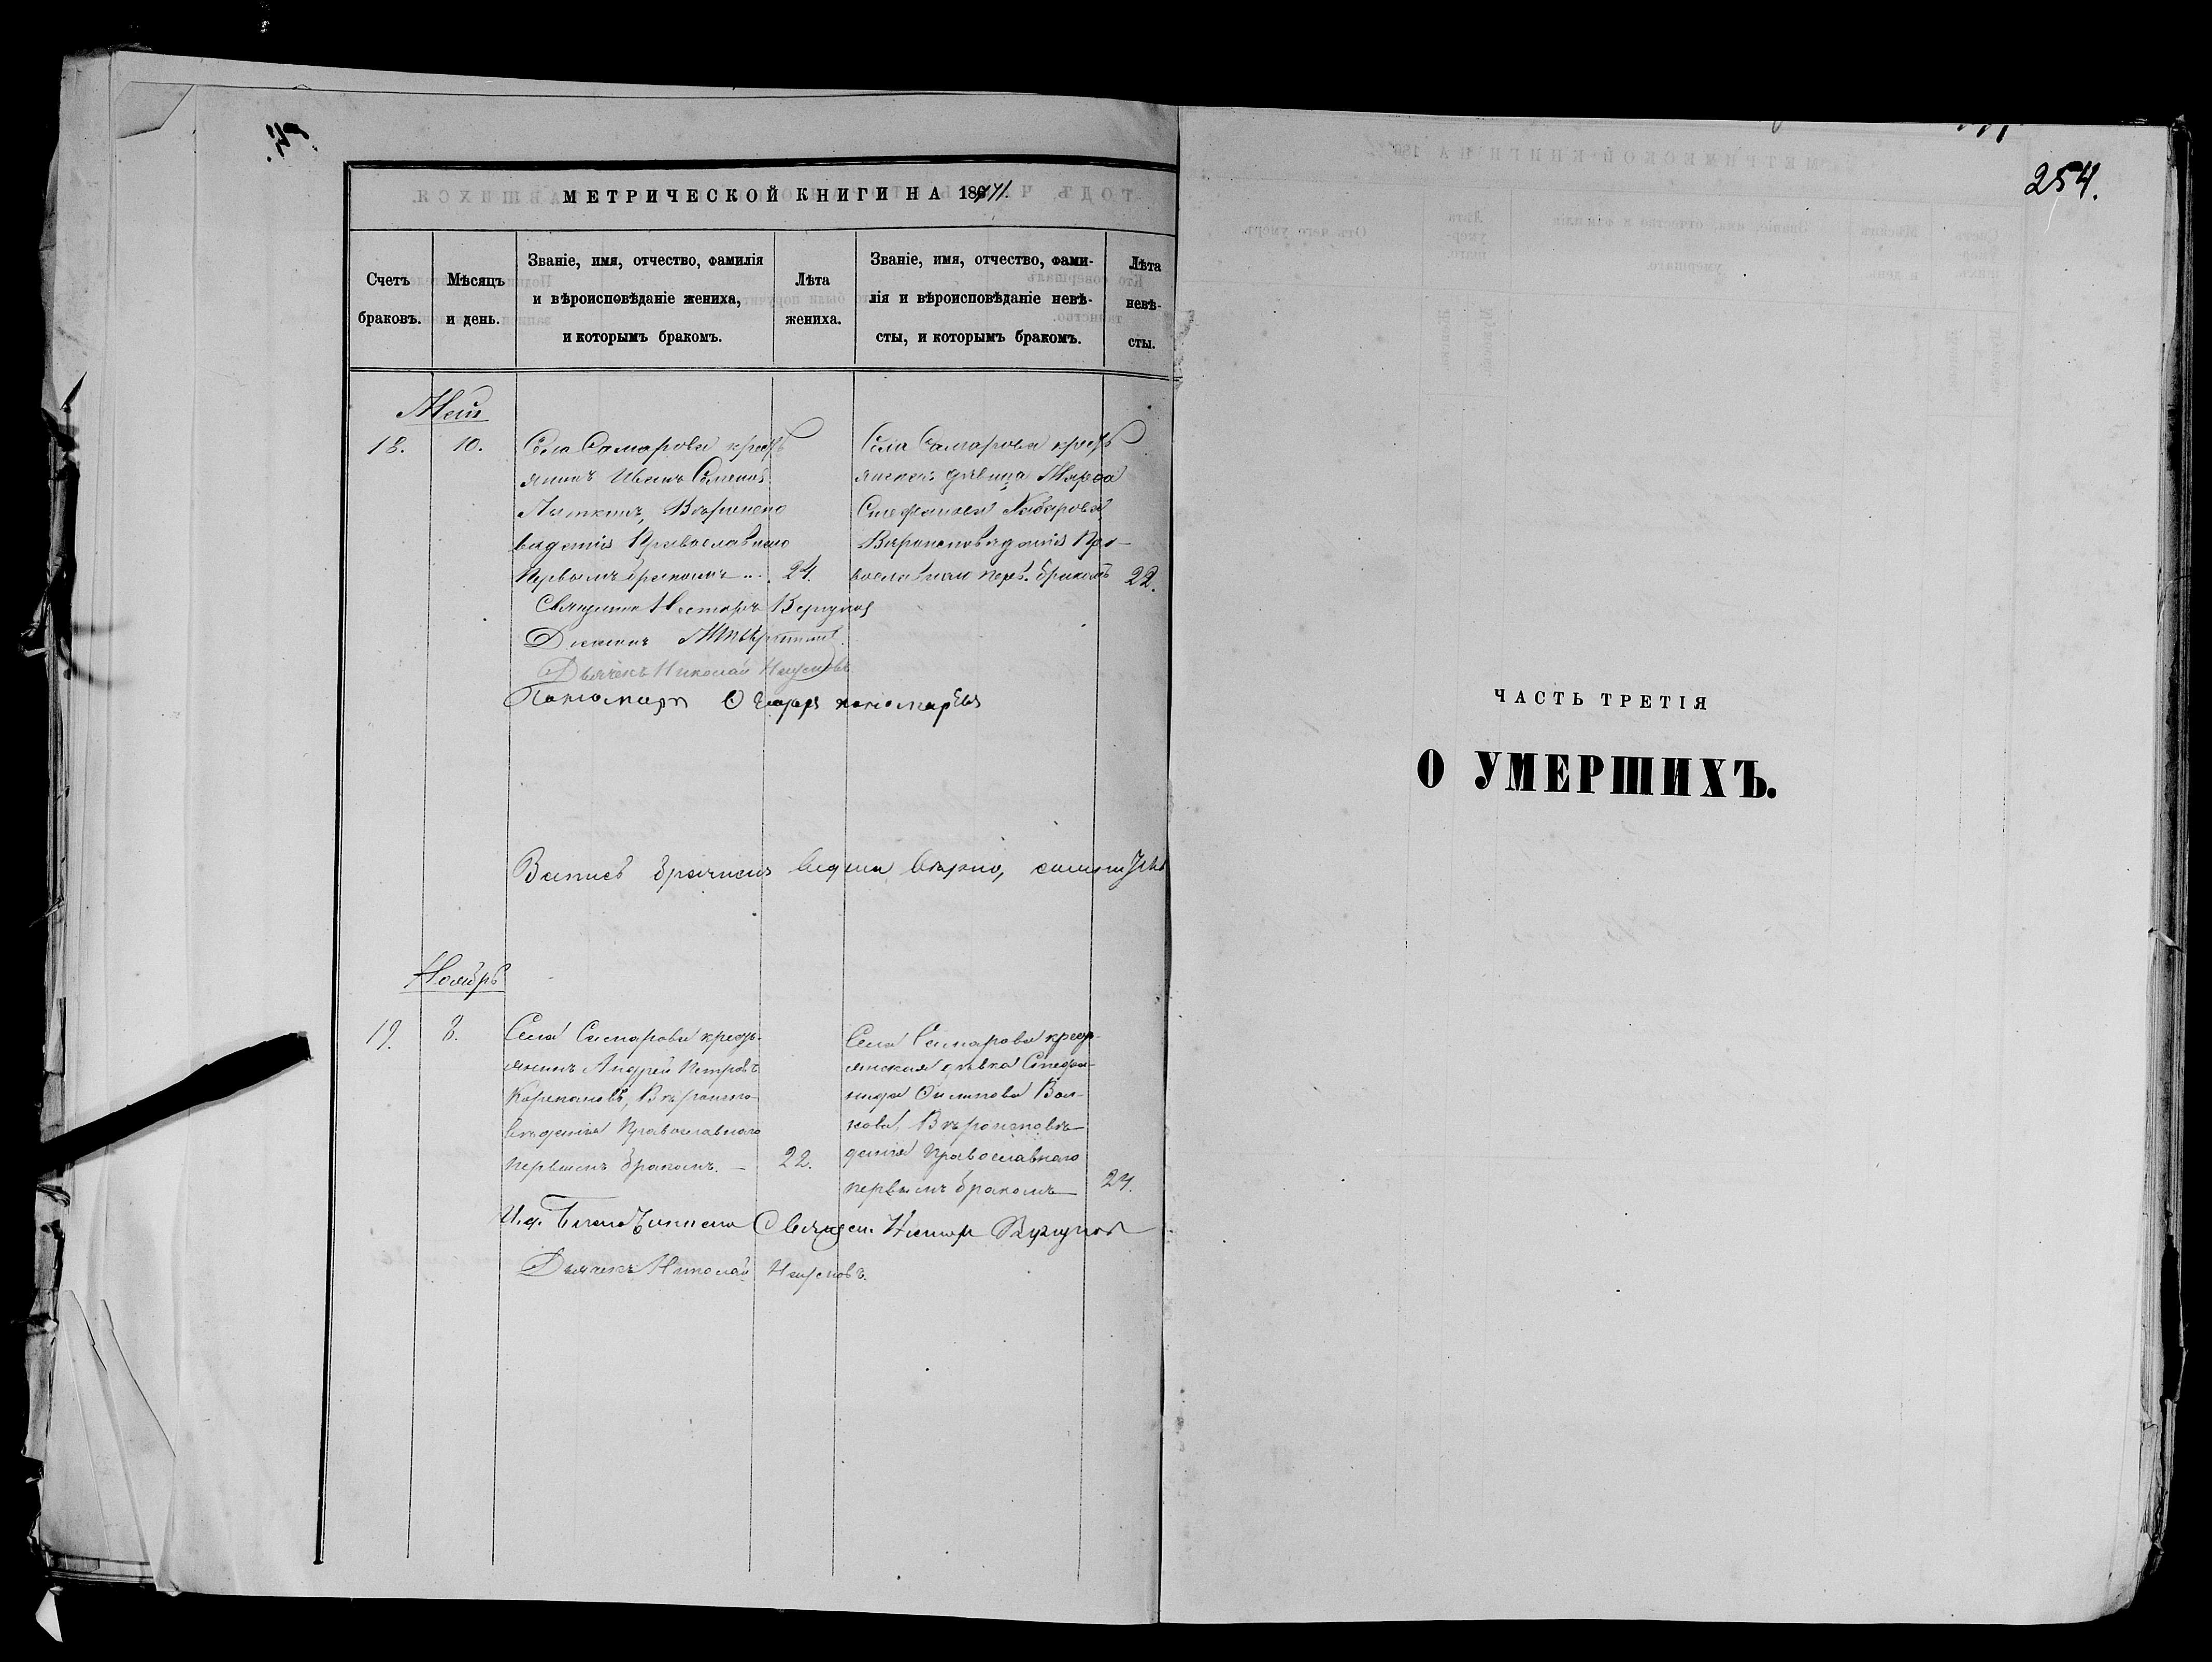 МЕТРИЧЕСКОЙ КНИГИ НА 1871.
Счетъ браковъ.
Мѣсяцъ и день.
Званіе, имя, отчество, фамилія
и вѣроисповѣданіе жениха,
и которымъ бракомъ.
Лѣта
жениха.
Званіе, имя, отчество, фами-
лія и вѣроисповѣданіе невѣ-
сты, и которымъ бракомъ.
Лѣта
невѣ-
сты.
Май
18. 10.
Села Самарова кресть
янинъ Иванъ Семеновъ
Лыткинъ, Вѣроиспо
вѣданія Православнаго
Первымъ бракомъ 24.
Села Самарова кресть
янская дѣвица Марѳа
Стефанова Хабарова,
Вѣроисповѣданія Пра-
вославнаго перв. бракомъ 22.
Священникъ Несторъ Вергуновъ
Діаконъ
Дьячекъ Николай
Пономарь Пономаревъ
Запись браковъ ведена вѣрно,
Ноябрь
19. 8.
Села Самарова кресть-
янинъ Андрей Петровъ
Корепановъ, Вѣроиспо-
вѣданія Православнаго
первымъ бракомъ. 22.
Села Самарова кресть-
янская дѣвка Стефа-
нида Филипова Вол-
кова, Вѣроисповѣ-
данія Православнаго
первымъ бракомъ 24.
И. д. Благочиннаго Священ. Несторъ Вергуновъ
Дьячекъ Николай
254.
ЧАСТЬ ТРЕТІЯ
О УМЕРШИХЪ.